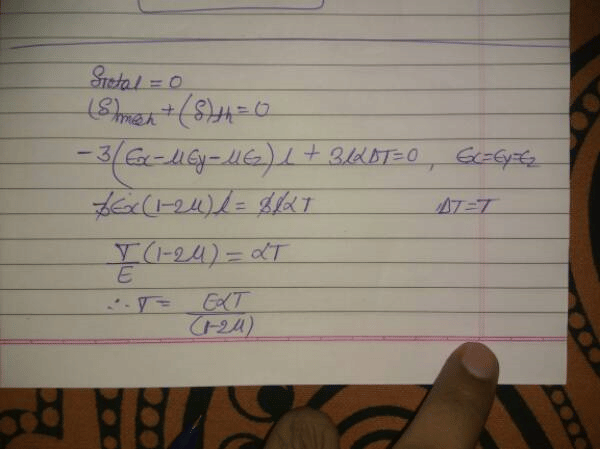 δtotal = 0
(δ)mech + (δ)th = 0
- 3(Ex - μEy - μEz) l + 3lαΔT = 0, Ex = Ey = Ez
3Ex(1-2μ) l = 3lαT ΔT = T
σ/E (1-2μ) = αT
∴ σ = EαT/(1-2μ)